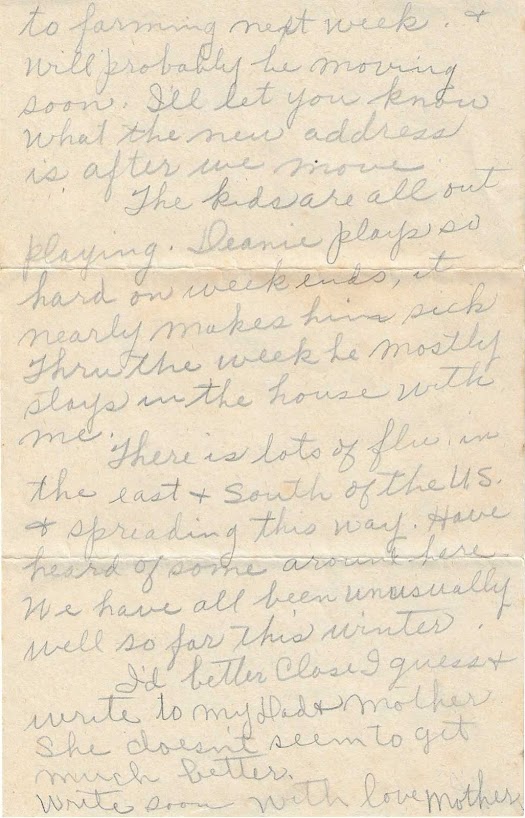 to farming next week. &
will probably be moving
soon. I'll let you know
what the new address
is after we move
The kids are all out
playing. Deanie plays so
hard on week ends, it
nearly makes him sick
Thru the week he mostly
stays in the house with
me.
There is lots of flu in
the east & South of the US.
& spreading this way. Have
heard of some around here
We have all been unusually
well so far this winter.
I'd better Close I guess &
write to my Dad & Mother
She doesn't seem to get
much better.
Write soon With love Mother